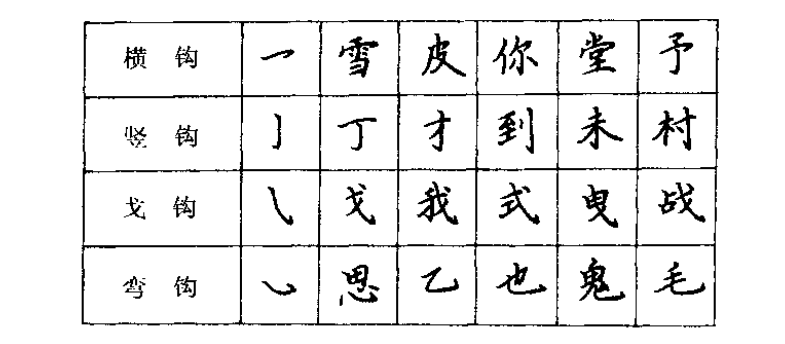 横钩 ㇖ 雪 皮 你 堂 予
竖钩 亅 丁 才 到 未 村
戈钩 ㇂ 戈 我 式 曳 战
弯钩 ㇃ 思 乙 也 鬼 毛